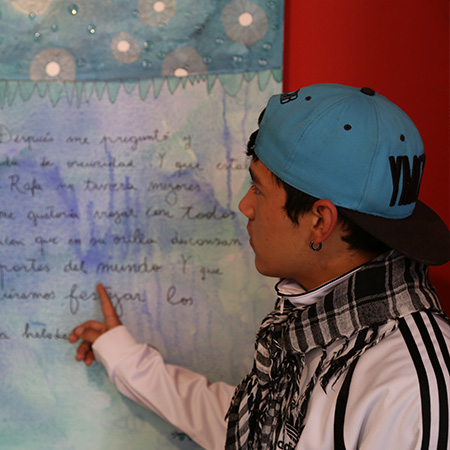 Después me preguntó y
de oscuridad. Y que
Rafa no tuviera mejores
me quería viajar con todos
que en su orilla descansan
portes del mundo Y que
festejar los
YM